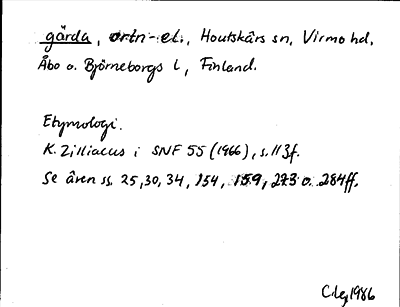 gärda, ortn-el., Houtskärs sn, Virmo hd,
Åbo o. Björneborgs l, Finland.
Etymologi.
K. Zilliacus i SNF 55 (1966), s. 113f.
Se även ss. 25, 30, 34, 154, 159, 273 o. 284ff.
CLg 1986